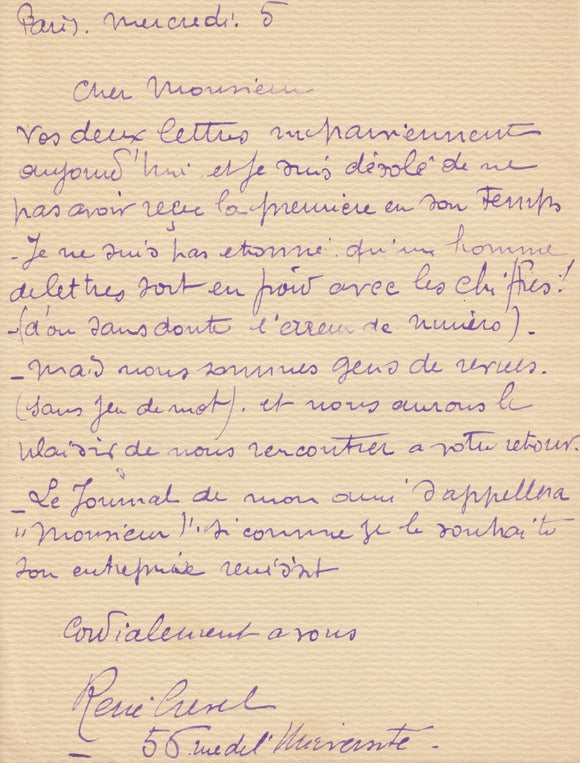 Paris. Mercredi. 5
Cher Monsieur
Vos deux lettres me parviennent
aujourd'hui et je suis désolé de ne
pas avoir reçu la première en son temps
- Je ne suis pas etonné qu'un homme
de lettres soit en froid avec les chiffres!
- (d'ou sans doute l'erreur de numéro). -
- Mais nous sommes gens de revues.
(sans jeu de mot). et nous aurons le
plaisir de nous rencontrer a votre retour.
- Le Journal de mon ami s'appellera
"Monsieur". si comme je le souhaite
son entreprise reussit
Cordialement a vous
René Crevel
- 56 rue de l'Université -